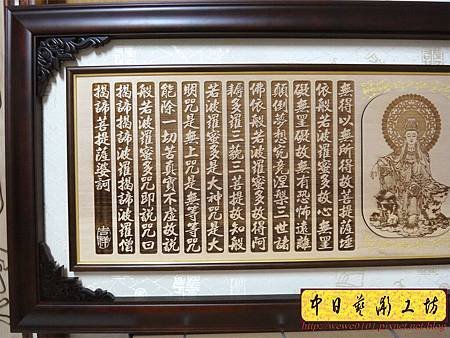 無得以無所得故菩提薩埵
依般若波羅蜜多故心無罣
礙無罣礙故無有恐怖遠離
顛倒夢想究竟涅槃三世諸
佛依般若波羅蜜多故得阿
耨多羅三藐三菩提故知般
若波羅蜜多是大神咒是大
明咒是無上咒是無等等咒
能除一切苦真實不虛故說
般若波羅蜜多咒即說咒曰
揭諦揭諦波羅揭諦波羅僧
揭諦菩提薩婆訶
中日藝工坊
http://wewe0101.pixnet.net/blog